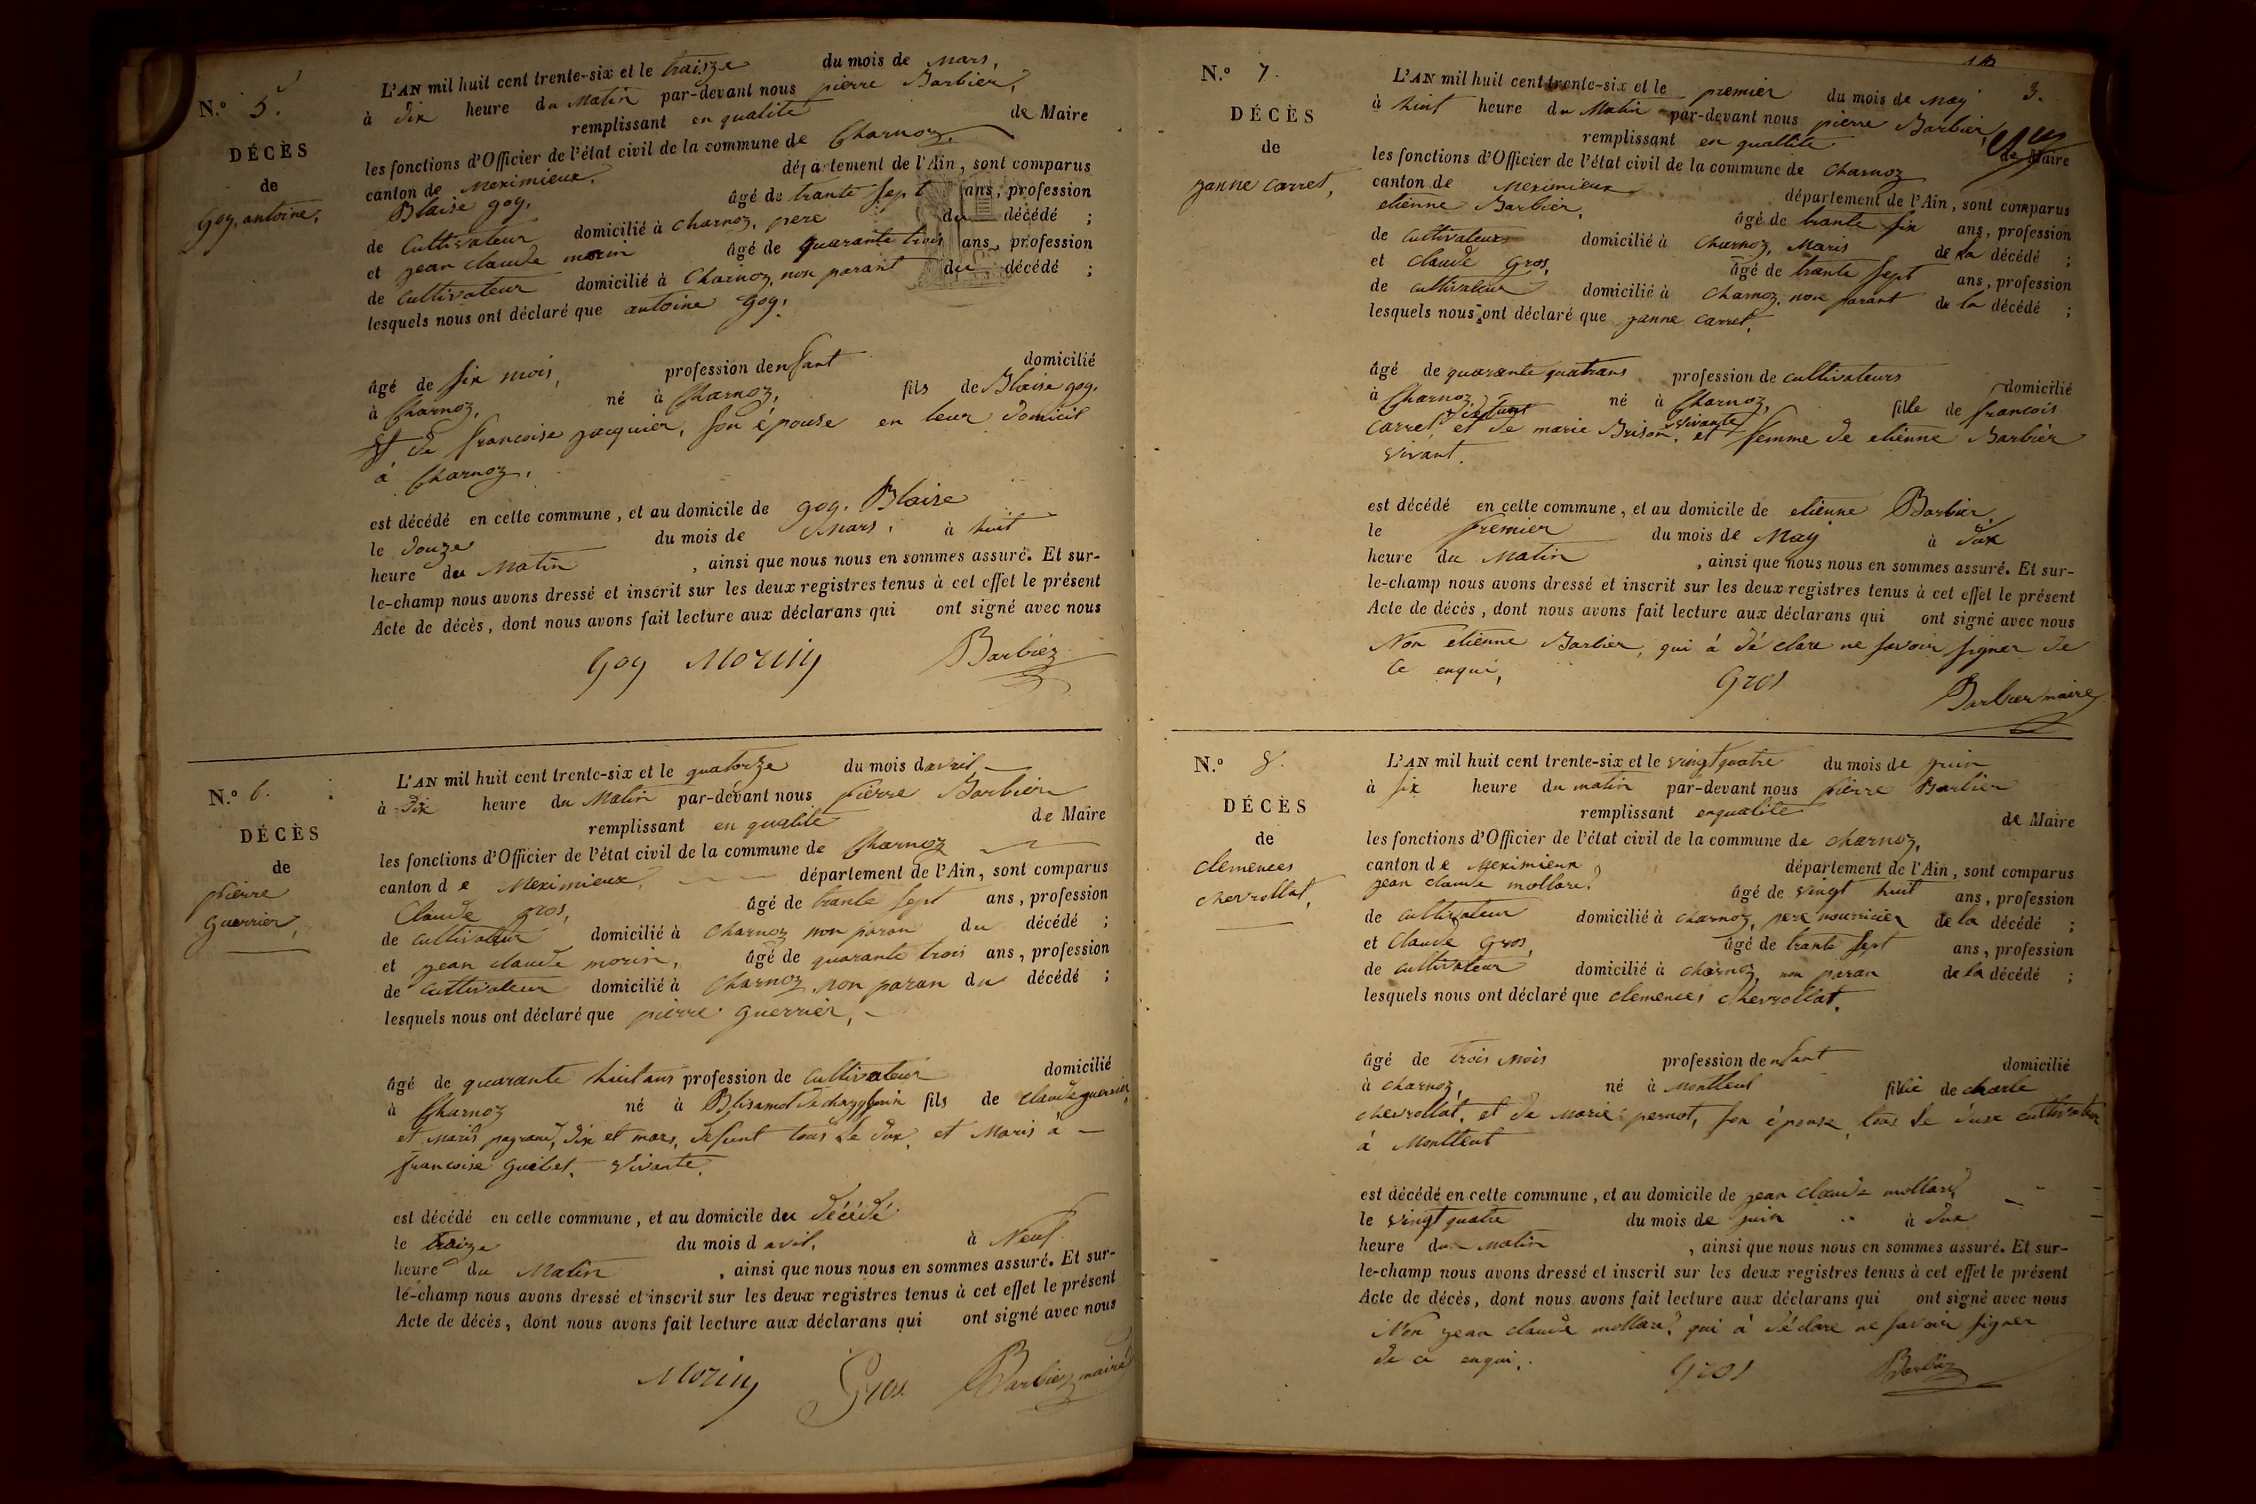 N.o 5.
DÉCÈS
de
goy, antoine,
L'AN mil huit cent trente-six et le traize du mois de Mars,
à dix heure du Matin par-devant nous pierre Barbier,
remplissant en qualité de Maire
les fonctions d'Officier de l'état civil de la commune de Charnoz,
canton de Meximieux, département de l'Ain, sont comparus
Blaise goy, âgé de trante sept ans, profession
de Cultivateur domicilié à charnoz, pere du décédé ;
et jean claude morin âgé de quarante trois ans, profession
de cultivateur domicilié à Charnoz, non parant du décédé ;
lesquels nous ont déclaré que antoine goy,
âgé de six mois, profession denfant domicilié
à Charnoz, né à Charnoz, fils de Blaise goy,
et de francoise jacquier, son épouse en leur domicil
à Charnoz,
est décédé en cette commune, et au domicile de goy, Blaise
le douze du mois de Mars, à huit
heure du Matin , ainsi que nous nous en sommes assuré. Et sur-
le-champ nous avons dressé et inscrit sur les deux registres tenus à cet effet le présent
Acte de décès, dont nous avons fait lecture aux déclarans qui ont signé avec nous
Goy Morin Barbier
N.o 6.
DÉCÈS
de
pierre
guerrier,
L'AN mil huit cent trente-six et le quatorze du mois davril
à dix heure du Matin par-devant nous pierre Barbier
remplissant en qualité de Maire
les fonctions d'Officier de l'état civil de la commune de Charnoz
canton de Meximieux, département de l'Ain, sont comparus
Claude gros, âgé de trante sept ans, profession
de cultivateur domicilié à charnoz non paran du décédé ;
et jean claude morin, âgé de quarante trois ans, profession
de cultivateur domicilié à Charnoz, non paran du décédé ;
lesquels nous ont déclaré que pierre guerrier,
âgé de quarante huit ans profession de cultivateur domicilié
à Charnoz né à fils de claude guerrier,
et marie defunt tous de dux, et Maris à
francoise guibet, vivante,
est décédé en cette commune, et au domicile du décédé
le traize du mois d avil, à Neuf
heure du Matin , ainsi que nous nous en sommes assuré. Et sur-
le-champ nous avons dressé et inscrit sur les deux registres tenus à cet effet le présent
Acte de décès, dont nous avons fait lecture aux déclarans qui ont signé avec nous
Morin Gros Barbier maire
3.
N.o 7.
DÉCÈS
de
janne carret,
L'AN mil huit cent trente-six et le premier du mois de May
à huit heure du Matin par-devant nous pierre Barbier,
remplissant en quallité de Maire
les fonctions d'Officier de l'état civil de la commune de Charnoz
canton de Meximieux département de l'Ain, sont comparus
etienne Barbier, âgé de trante six ans, profession
de cultivateur domicilié à Charnoz, Maris de la décédé ;
et claude Gros, âgé de trante sept ans, profession
de cultivateur domicilié à charnoz, non parant de la décédé ;
lesquels nous ont déclaré que janne carret,
âgé de quarante quatrans profession de cultivateurs domicilié
à Charnoz, né à Charnoz, fille de francois
Carret, et de marie Brison, vivante, et femme de etienne Barbier
vivant.
est décédé en cette commune, et au domicile de etienne Barbier,
le premier du mois de May à dux
heure du Matin , ainsi que nous nous en sommes assuré. Et sur-
le-champ nous avons dressé et inscrit sur les deux registres tenus à cet effet le présent
Acte de décès, dont nous avons fait lecture aux déclarans qui ont signé avec nous
Non etienne Barbier, qui à déclare ne savoir signer de
ce enqui,
Gros Barbier maire
N.o 8.
DÉCÈS
de
clemences
chevrollat,
L'AN mil huit cent trente-six et le vingt quatre du mois de juin
à six heure du matin par-devant nous pierre Barbier
remplissant enqualité de Maire
les fonctions d'Officier de l'état civil de la commune de charnoz,
canton de Meximieux département de l'Ain, sont comparus
jean claude mollard, âgé de vingt huit ans, profession
de cultivateur domicilié à charnoz, pere nourricier de la décédé ;
et Claude Gros, âgé de trante sept ans, profession
de cultivateur domicilié à charnoz, non paran de la décédé ;
lesquels nous ont déclaré que clemences chevrollat,
âgé de trois mois profession denfant domicilié
à charnoz, né à Montleul fille de charle
chevrollat, et de Marie pernot, son épouse, tous de duxe cultivateur
à Montleul
est décédé en cette commune, et au domicile de jean claude mollard,
le vingt quatre du mois de juin à dux
heure du Matin , ainsi que nous nous en sommes assuré. Et sur-
le-champ nous avons dressé et inscrit sur les deux registres tenus à cet effet le présent
Acte de décès, dont nous avons fait lecture aux déclarans qui ont signé avec nous
Non jean claude mollard, qui à déclare ne savoir signer
de ce enqui,
Gros Barbier